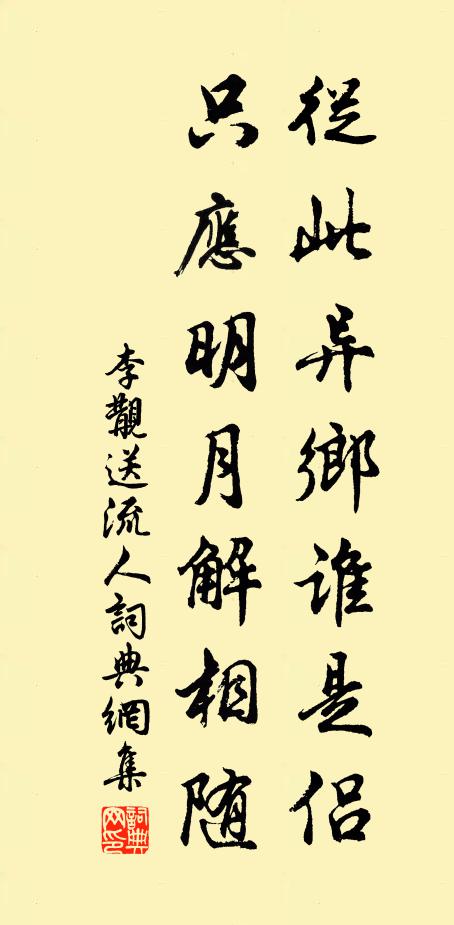 從此异鄉誰是侶
只應明月解相随
李觀送流人詞典網集
詞典網印